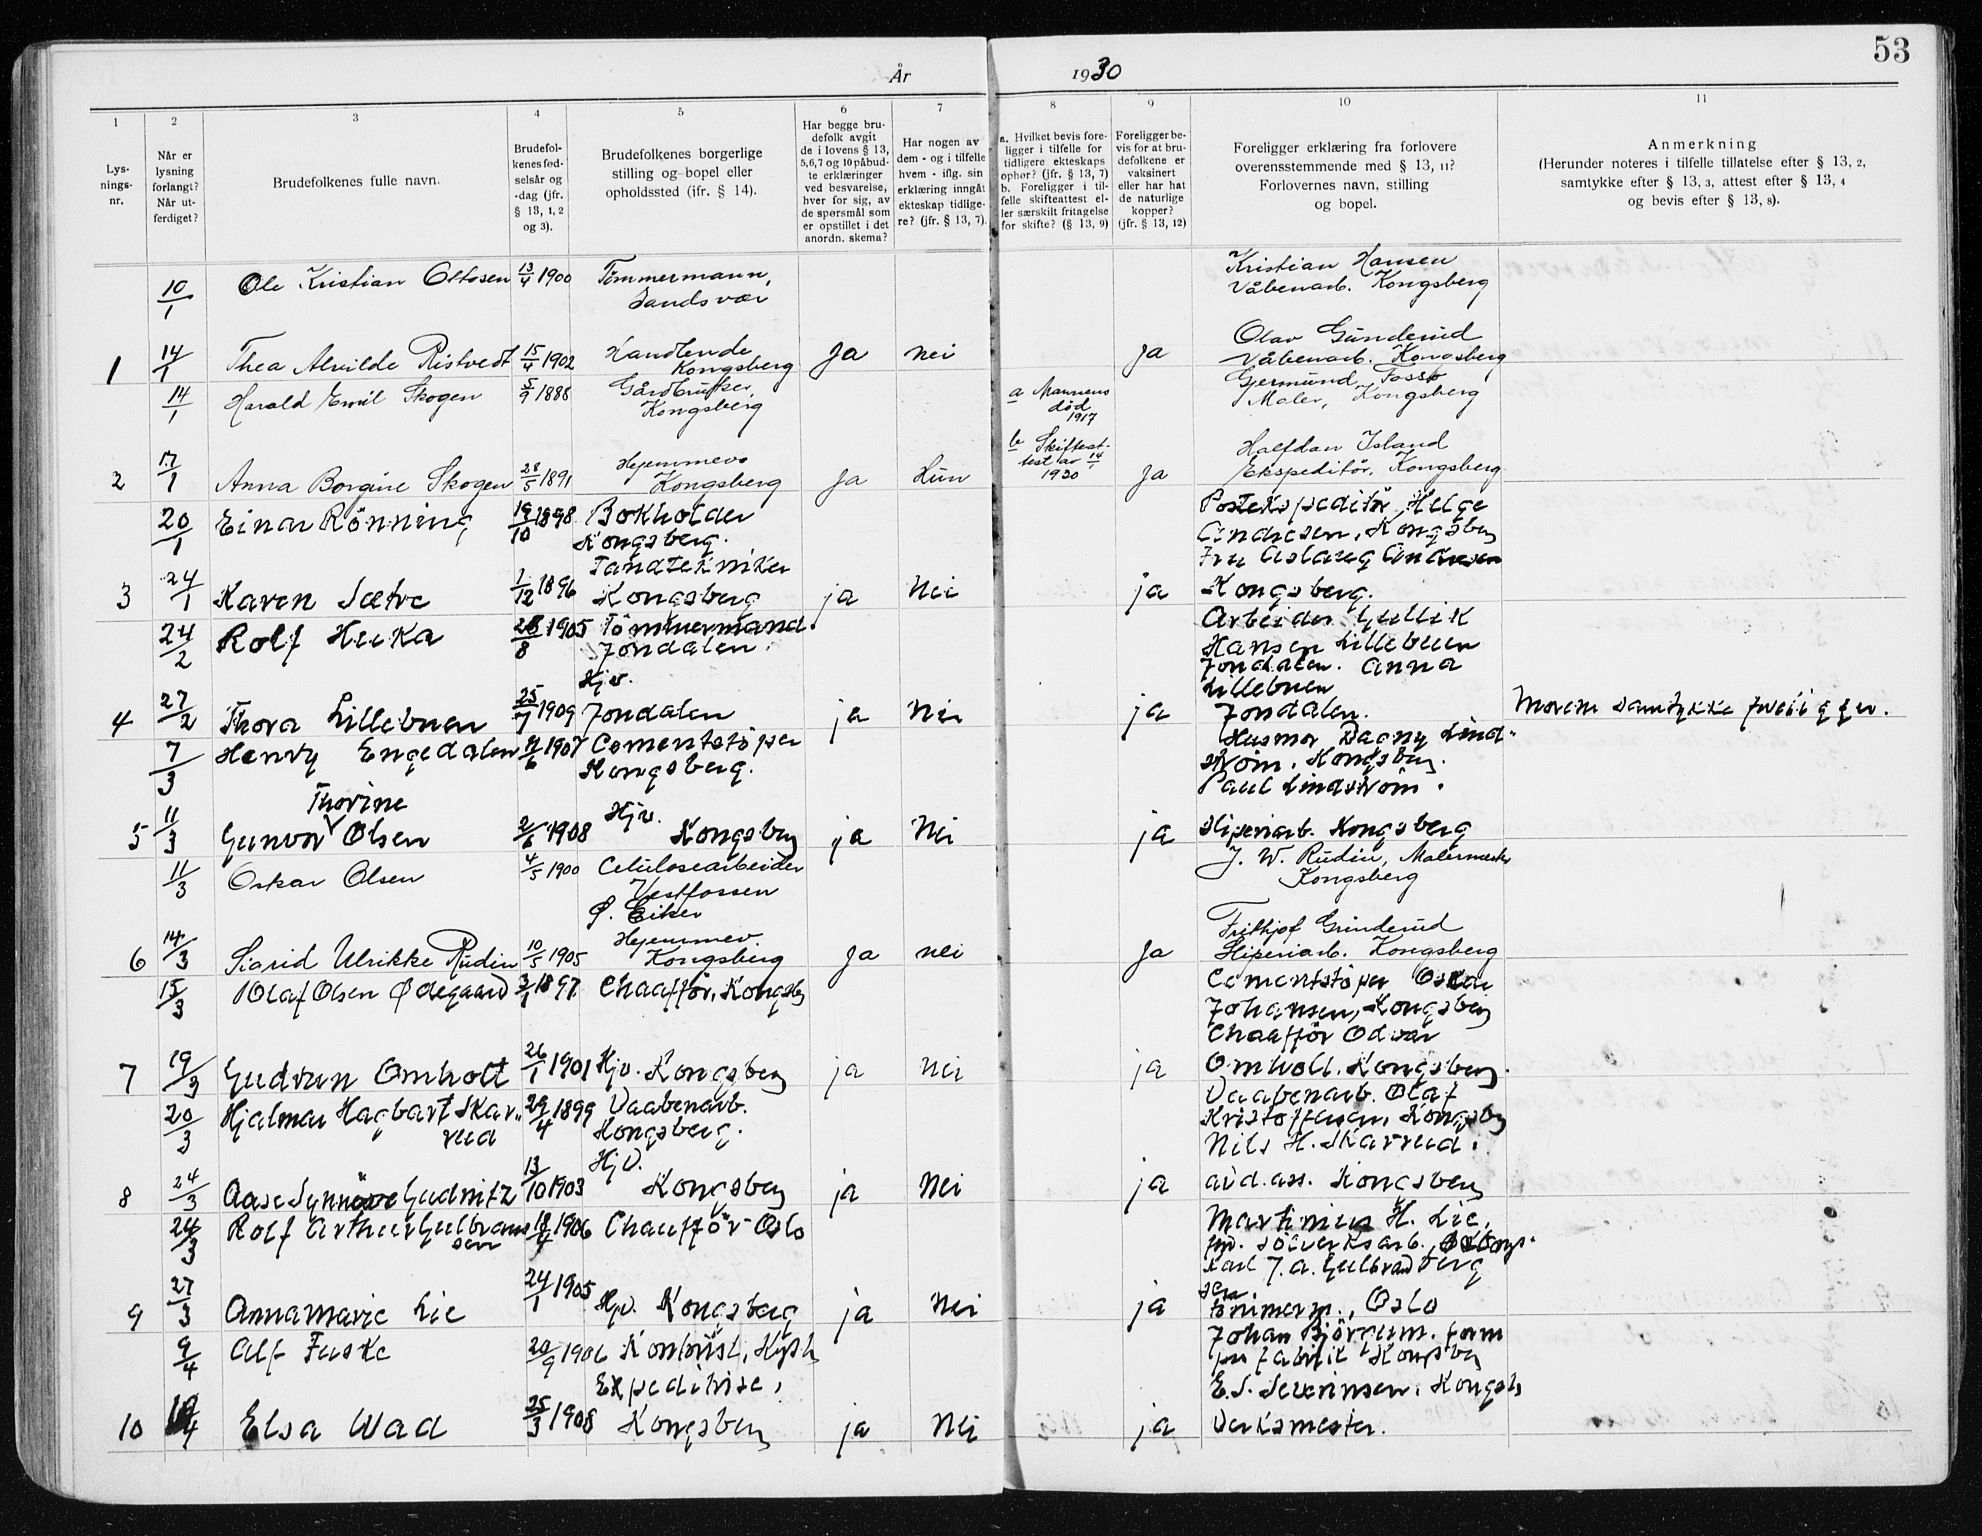 53
År 1930
1 2 3 4 5 6 7 8 9 10 11
Lys-
nings-
nr.
Når er
lysning
forlangt?
Når ut-
ferdiget?
Brudefolkenes fulle navn.
Brudefol-
kenes fød-
selsår og
-dag (jfr.
§ 13, 1, 2
og 3).
Brudefolkenes borgerlige
stilling og bopel eller
opholdssted (ifr. § 14).
Har begge bru-
defolk avgit
de i lovens § 13,
5,6,7 og 10 påbud-
te erklæringer
ved besvarelse,
hver for sig, av
de spørsmål som
er opstillet i det
anordn. skema?
Har nogen av
dem - og i tilfelle
hvem - iflg. sin
erklæring inngåt
ekteskap tidlige-
re? (jfr. § 13, 7).
a. Hvilket bevis fore-
ligger i tilfelle for
tidligere ekteskaps
ophør? (jfr. § 13, 7)
b. Foreligger i til-
felle skifteattest el-
ler særskilt fritagelse
for skifte? (§ 13, 9)
Foreligger be-
vis for at bru-
defolkene er
vaksinert
eller har hat
de naturlige
kopper?
(jfr. § 13, 12)
Foreligger erklæring fra forlovere
overensstemmende med § 13, 11?
Forlovernes navn, stilling
og bopel.
Anmerkning
(Herunder noteres i tilfelle tillatelse efter § 13, 2,
samtykke efter § 13, 3, attest efter § 13, 4
og bevis efter § 13, 8).
10/1 Ole Kristian Ottosen 13/4 1900 Tømmermann, Kristian Hansen
Sandsvær Våbenarb. Kongsberg
1 14/1 Thea Alvilde Ristvedt 15/4 1902 Handlende Ja nei ja Olav Gunderud
Kongsberg Våbenarb. Kongsberg
14/1 Harald Emil Skogen 5/9 1888 Gårdbruker, a Mannens Gjermund Fossø
Kongsberg død Maler, Kongsberg
1917
2 17/1 Anna Borgine Skogen 28/5 1891 Hjemmevs Ja Hun b Skifteat- Ja Halfdan Island
Kongsberg test av 14/1 Ekspeditør, Kongsberg
1930
20/1 Einar Rönning 19/10 1898 Bokholder Postekspeditör Helge
Kongsberg. Andresen, Kongsberg
Tandtekniker Fru Aslaug Andresen
3 24/1 Karen Sætre 1/12 1896 Kongsberg ja Nei ja Kongsberg.
24/2 Rolf Huka 28/8 1905 Tömmermand. Arbeider Gullik
Jondalen. Hansen Lillebuen
Hjv. Jondalen. Anna
Lillebuen
4 27/2 Thora Lillebuen 25/7 1909 Jondalen ja Nei ja Jondalen. Morens samtykke
7/3 Henry Engedalen 1907 Cementstöper Husmor Dagny Lind-
Kongsberg. ström, Kongsberg.
Thorine Paul Lindström.
5 11/3 Gunvor Olsen 1908 Hjv. Kongsberg ja Nei ja Sliperiarb. Kongsberg
11/3 Oskar Olsen 4/5 1900 Celulosearbeider J. W. Rudin, Malermester
Vestfossen Kongsberg
Ø. Eiker
6 14/3 Sigrid Ulrikke Rudin 10/5 1905 Hjemmev. Ja nei Ja Frithjof Grinderud
Kongsberg Sliperiarb. Kongsberg
15/3 Olaf Olsen Ødegaard 3/1 1897 Chaafför, Kongsbg Cementstöper Oskar
Johansen, Kongsberg
Chaafför Odvar
7 19/3 Gudrun Omholt 26/1 1901 Hjv. Kongsberg ja Nei ja Omholt. Kongsberg.
20/3 Hjalmar Hagbart Skar- 29/4 1899 Vaabenarb. Vaabenarb. Olaf
rud Kongsberg. Kristoffersen, Kongsbg
Nils H. Skarrud.
8 24/3 Aase Synnöve Gudnitz 13/10 1903 Hjv. Kongsberg ja Nei ja avd. ass. Kongsberg
24/3 Rolf Arthur Gulbrand 1906 Chaufför Oslo Martinius H. Lie,
sen sölverksarb. Kongs-
Karl J. A. Gulbrand berg
9 27/3 Annamarie Lie 24/1 1905 Hjv. Kongsberg ja Nei ja sen
tömmerm., Oslo
9/4 Alf Fuske 20/9 1906 Johan Björnum. form
fabrik Kongsberg
Expeditrise, E. S. Severinsen. Kongsb
10 Elsa Wad 25/3 1908 Kongsberg ja Nei ja Verksmester.